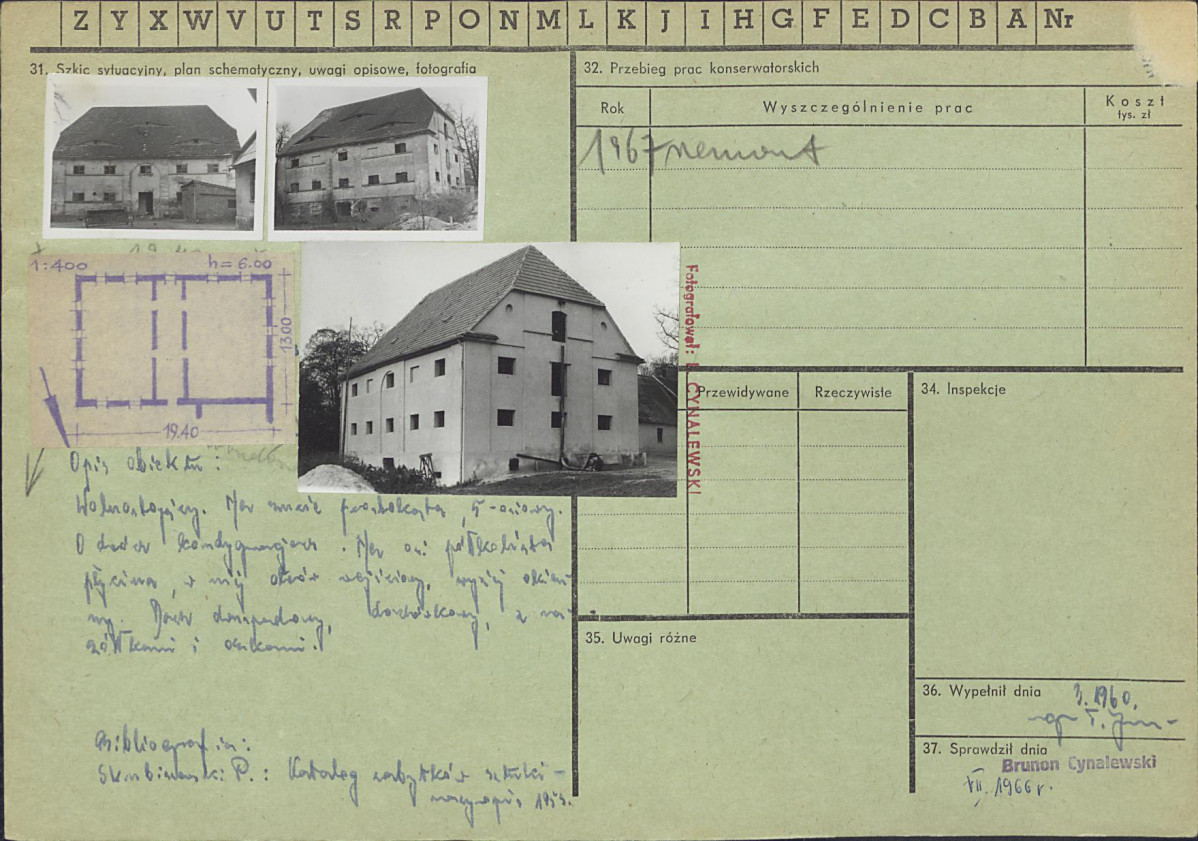 Z Y X W V U T S R P O N M L K J I H G F E D C B A Nr
31. Szkic sytuacyjny, plan schematyczny, uwagi opisowe, fotografia
1:400
h = 6.00
13.00
19.40
Opis obiektu:
Wolnostojący. Na rzucie prostokąta, 5-osiowy.
O dwóch kondygnacjach. Na osi półkolista
płycina, w niej otwór wejściowy, wyżej okien-
ny. Dach dwuspadowy, dachówkowy, z na-
czółkami i
Bibliografia:
P.: Katalog zabytków sztuki -
maszynopis, 1953.
Fotografował: B. CYNALEWSKI
32. Przebieg prac konserwatorskich
Rok
Wyszczególnienie prac
Koszt
tys. zł
1967 remont
Przewidywane
Rzeczywiste
34. Inspekcje
35. Uwagi różne
36. Wypełnił dnia
3.1960.
mgr T.
37. Sprawdził dnia
Brunon Cynalewski
VII. 1966 r.